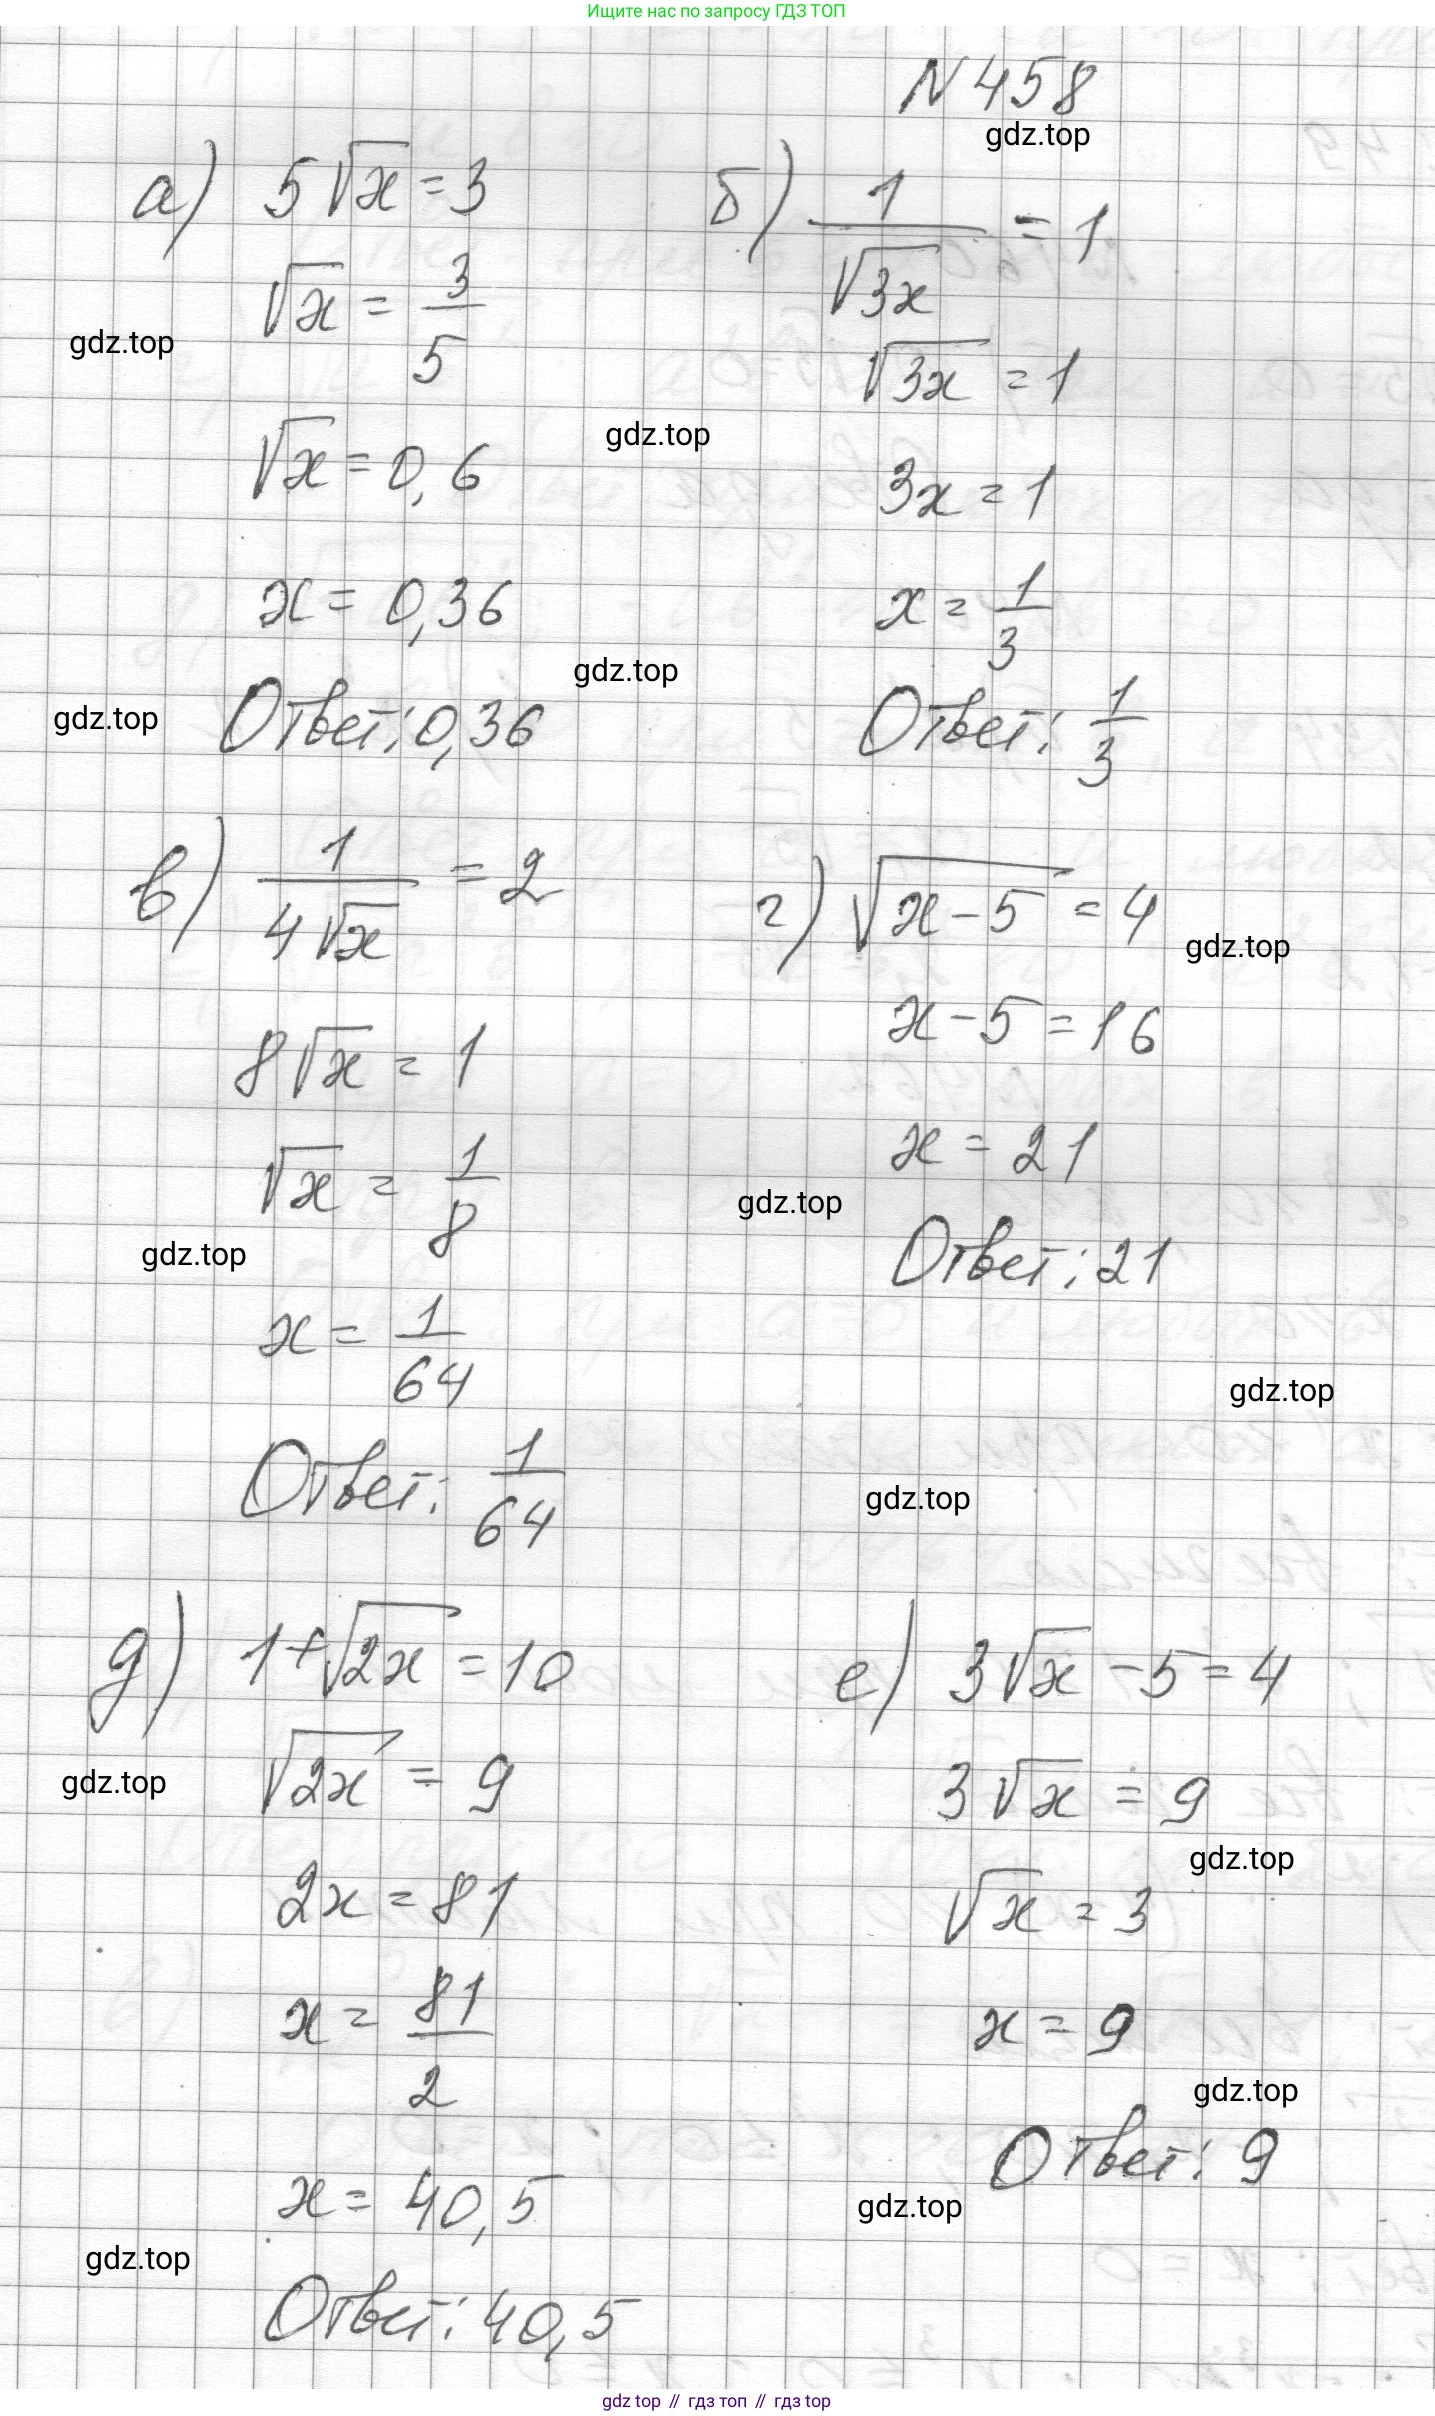 Ищите нас по запросу ГДЗ ТОП
N 458
gdz.top
а) 5√x = 3
√x = 3/5
gdz.top
√x = 0,6
x = 0,36
Ответ: 0,36
gdz.top
б) 1/√3x = 1
√3x = 1
gdz.top
3x = 1
x = 1/3
gdz.top
Ответ: 1/3
в) 1/4√x = 2
8√x = 1
√x = 1/8
gdz.top
x = 1/64
Ответ: 1/64
г) √x-5 = 4
gdz.top
x - 5 = 16
x = 21
gdz.top
Ответ: 21
gdz.top
gdz.top
д) 1+√2x = 10
√2x = 9
gdz.top
2x = 81
x = 81/2
x = 40,5
gdz.top
Ответ: 40,5
е) 3√x - 5 = 4
3√x = 9
gdz.top
√x = 3
x = 9
gdz.top
Ответ: 9
gdz.top
gdz top // гдз топ // гдз top